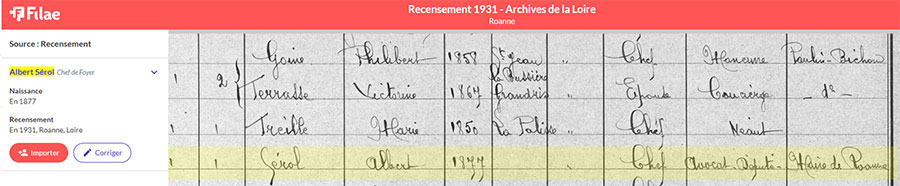 Filae
Recensement 1931 - Archives de la Loire
Roanne
Source : Recensement
Albert Sérol Chef de Foyer
Naissance
En 1877
Recensement
En 1931, Roanne, Loire
Importer
Corriger
Goine Philibert 1858 St Jean la Bussière " Chef Manœuvre Paulin-Bichon
1 2 Terrasse Victorine 1867 Grandris " Epouse Concierge - do -
1 1 Treille Marie 1850 La Palisse " Chef Néant
1 1 Sérol Albert 1877 " Chef Avocat-Député- Maire de Roanne